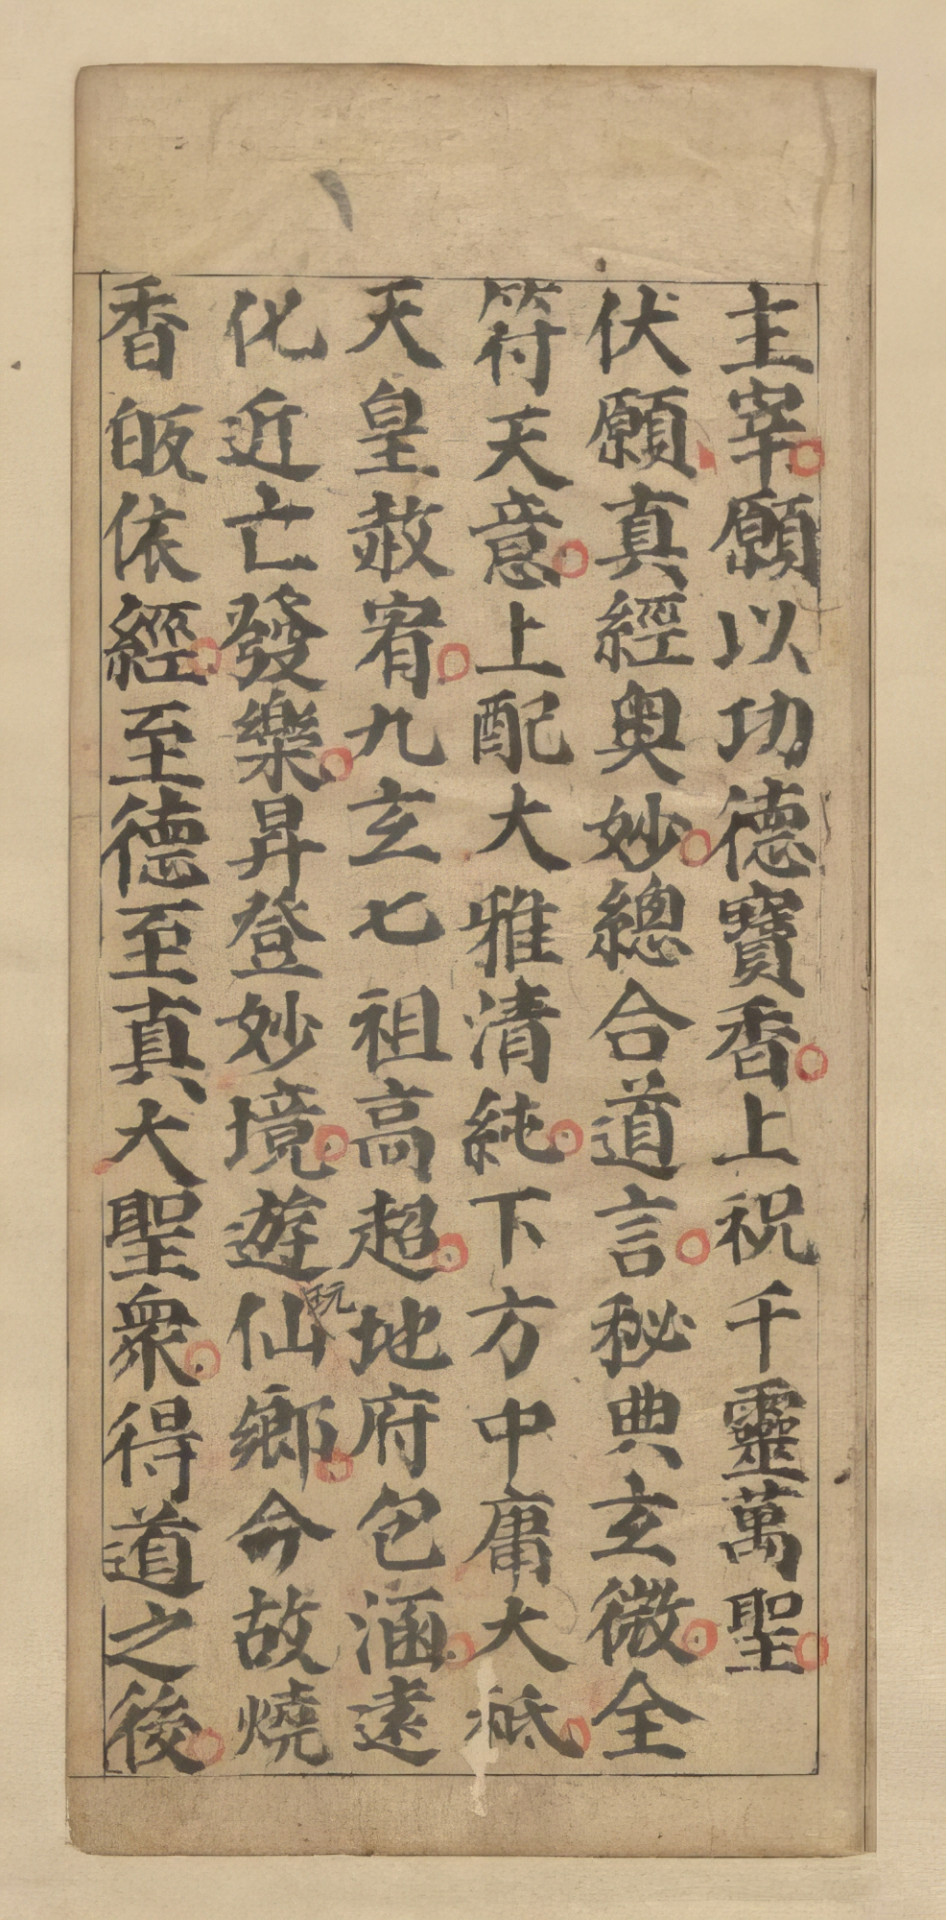 主宰願以功德寶香上祝千靈萬聖
伏願真經奧妙總合道言秘典玄微全
符天意上配大雅清純下方中庸大秪
天皇赦宥九玄七祖高超地府包涵遠
化近亡發樂昇登妙境遊仙鄉今故燒
玩
香皈依經至德至真大聖衆得道之後